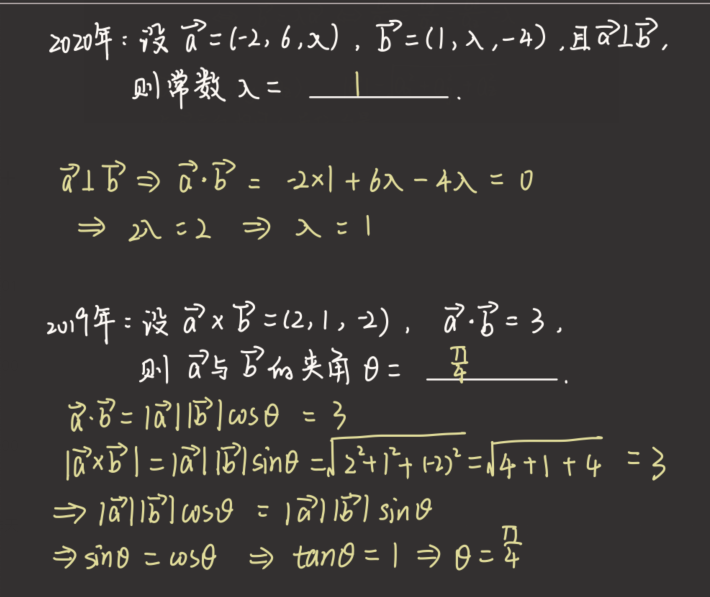 2020年：设 a⃗=(-2, 6, λ), b⃗=(1, λ, -4), 且a⃗⊥b⃗,
则常数 λ = 1 .
a⃗⊥b⃗ ⇒ a⃗·b⃗ = -2×1 + 6λ - 4λ = 0
⇒ 2λ = 2 ⇒ λ = 1
2019年：设 a⃗×b⃗=(2, 1, -2), a⃗·b⃗ = 3,
则 a⃗与b⃗的夹角 θ = π/4 .
a⃗·b⃗ = |a⃗||b⃗|cosθ = 3
|a⃗×b⃗| = |a⃗||b⃗|sinθ = √(2²+1²+(-2)²) = √(4+1+4) = 3
⇒ |a⃗||b⃗|cosθ = |a⃗||b⃗|sinθ
⇒ sinθ = cosθ ⇒ tanθ = 1 ⇒ θ = π/4